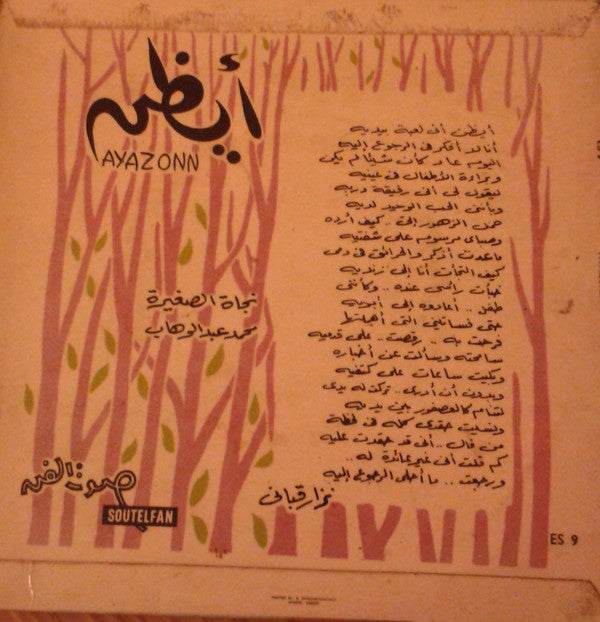 أيظن
AYAZONN
أيظن أنى لعبة بيديه
أنا لا أفكر فى الرجوع إليه
اليوم عاد كأن شيئا لم يكن
وبراءة الأطفال فى عينيه
ليقول لى أنى رفيقة دربه
وبأننى الحب الوحيد لديه
حمل الزهور إلىّ .. كيف أرده
وصباى مرسوم على شفتيه
ما عدت أذكر والحرائق فى دمى
كيف التجأت أنا إلى زنديه
خبأت رأسى عنده .. وكأننى
طفل .. أعادوه إلى أبويه
حتى فساتينى التى أهملتها
فرحت به .. رقصت .. على قدميه
سامحته وسألت عن أخباره
وبكيت ساعات على كتفيه
وبدون أن أدرى .. تركت له يدى
لتنام كالعصفور بين يديه
ونسيت حقدى كله فى لحظة
من قال .. أنى قد حقدت عليه
كم قلت أنى غير عائدة له ..
ورجعت .. ما أحلى الرجوع إليه
نزار قبانى
نجاة الصغيرة
محمد عبد الوهاب
صوت الفن
SOUTELFAN
ES 9